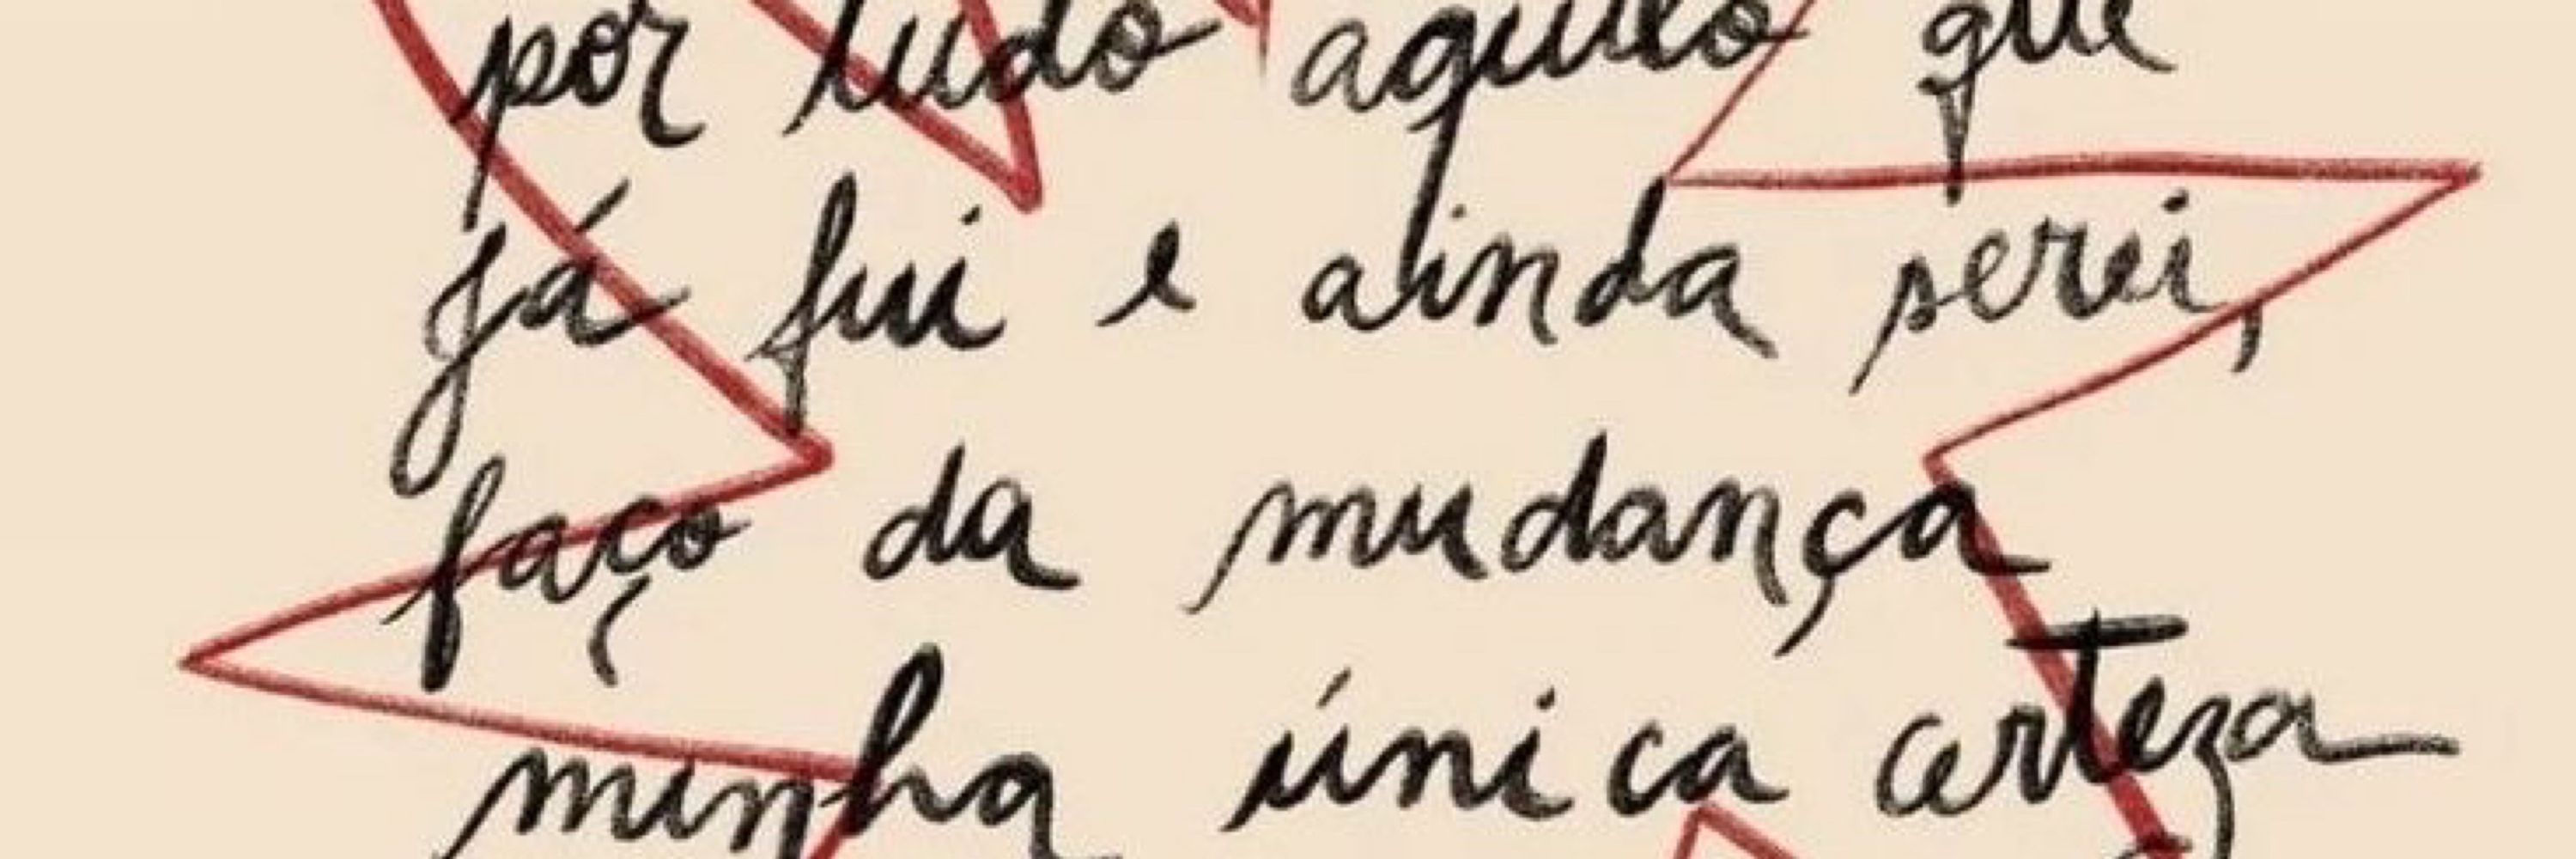 por tudo aquilo que
já fui e ainda serei,
faço da mudança
minha única certeza